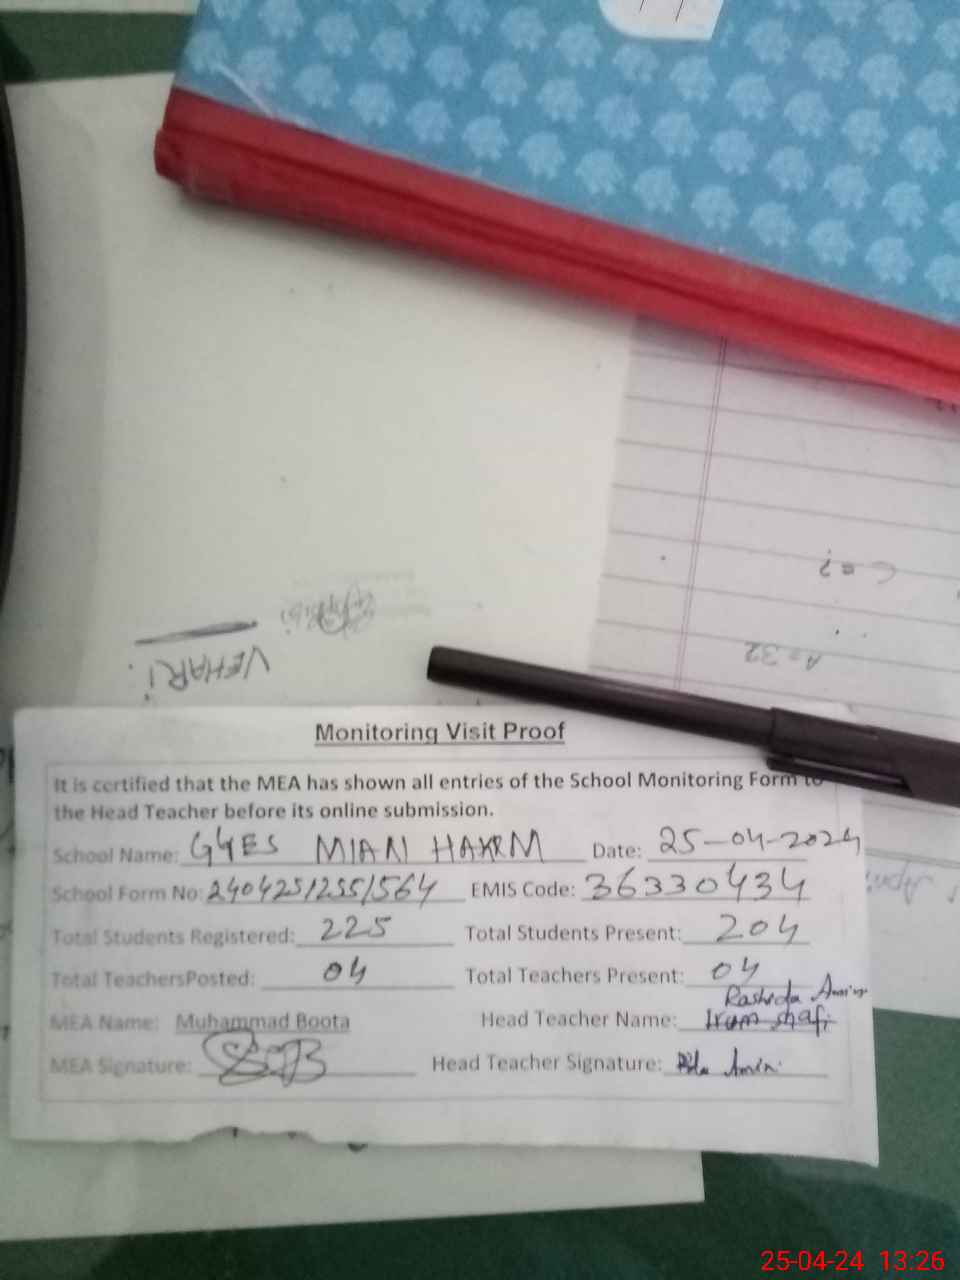 VEHARI
C = ?
A = 32
Monitoring Visit Proof
It is certified that the MEA has shown all entries of the School Monitoring Form to
the Head Teacher before its online submission.
School Name: GGES MIAN HAKRM Date: 25-04-2024
School Form No: 2404251255/564 EMIS Code: 36330434
Total Students Registered: 225 Total Students Present: 204
Total TeachersPosted: 04 Total Teachers Present: 04
Rashida Amin
MEA Name: Muhammad Boota Head Teacher Name: Irum shafi
MEA Signature: Head Teacher Signature: Amin
25-04-24 13:26